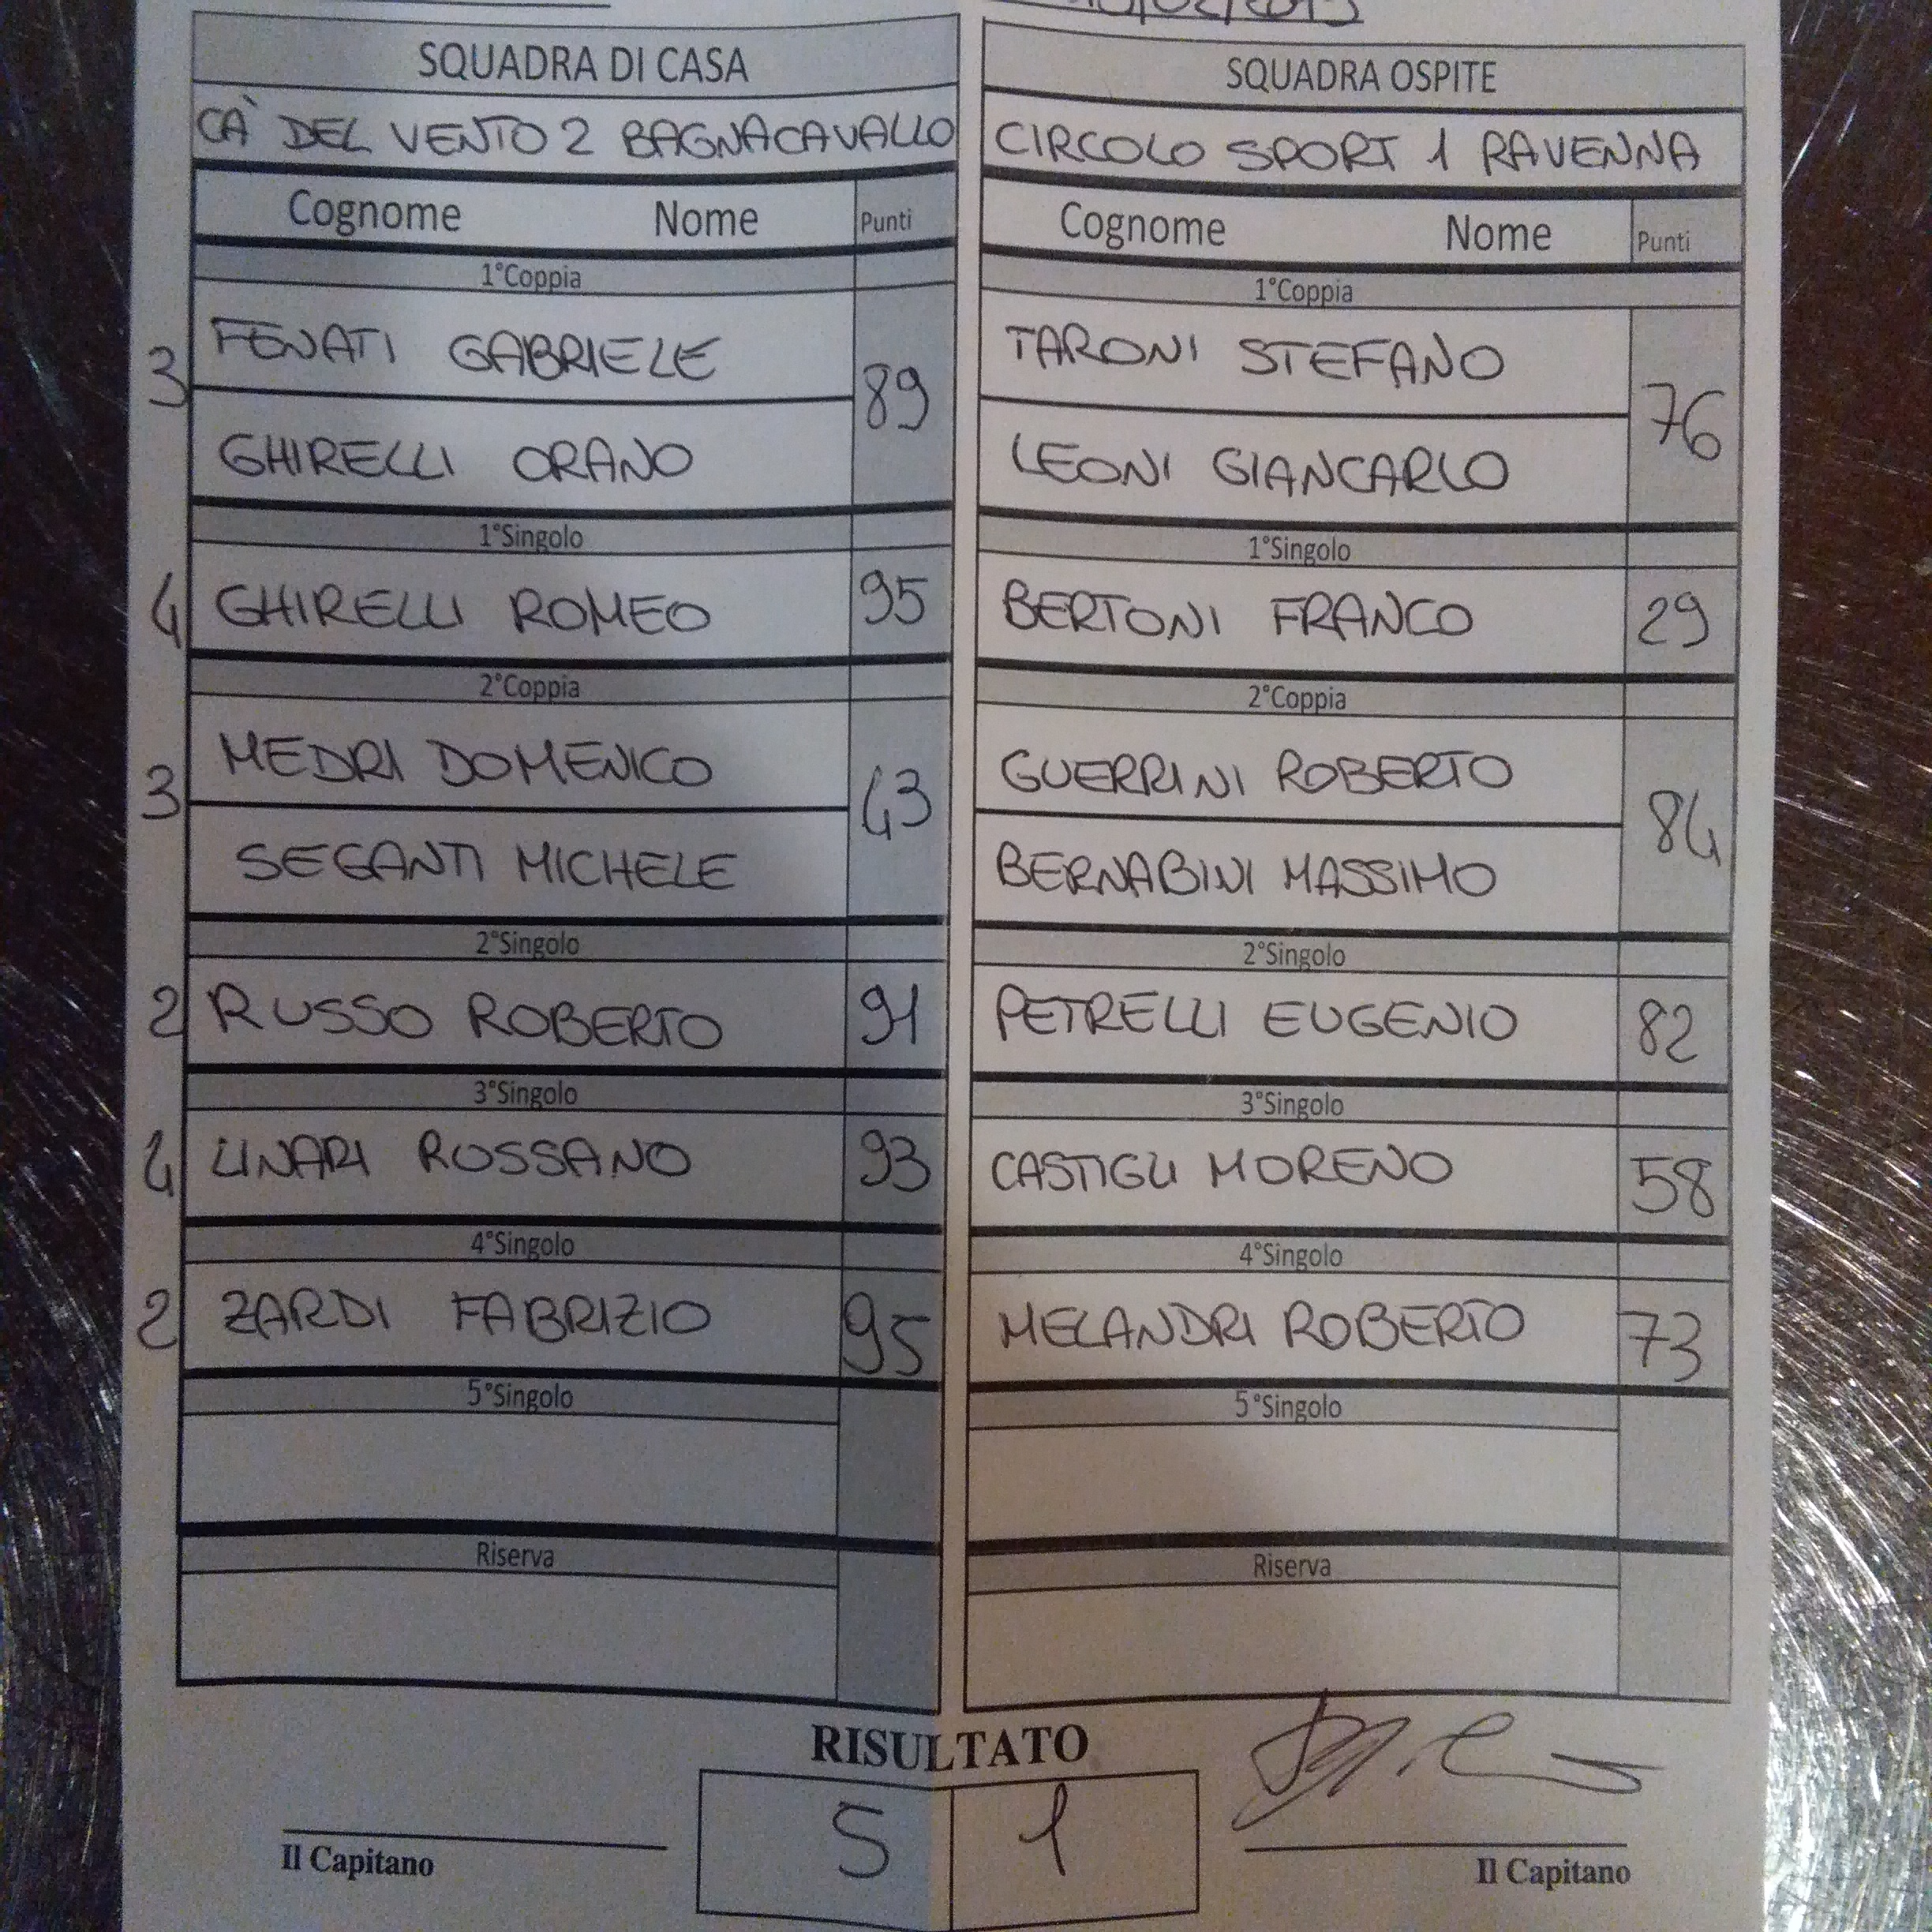 SQUADRA DI CASA
CA' DEL VENTO 2 BAGNACAVALLO
Cognome Nome Punti
1°Coppia
3 FENATI GABRIELE
89
GHIRELLI ORANO
1°Singolo
4 GHIRELLI ROMEO 95
2°Coppia
3 MEDRI DOMENICO
43
SEGANTI MICHELE
2°Singolo
2 RUSSO ROBERTO 91
3°Singolo
4 LINARI ROSSANO 93
4°Singolo
2 ZARDI FABRIZIO 95
5°Singolo
Riserva
SQUADRA OSPITE
CIRCOLO SPORT 1 RAVENNA
Cognome Nome Punti
1°Coppia
TARONI STEFANO
76
LEONI GIANCARLO
1°Singolo
BERTONI FRANCO 29
2°Coppia
GUERRINI ROBERTO
84
BERNABINI MASSIMO
2°Singolo
PETRELLI EUGENIO 82
3°Singolo
CASTIGLI MORENO 58
4°Singolo
MELANDRI ROBERTO 73
5°Singolo
Riserva
RISULTATO
5 1
Il Capitano
Il Capitano